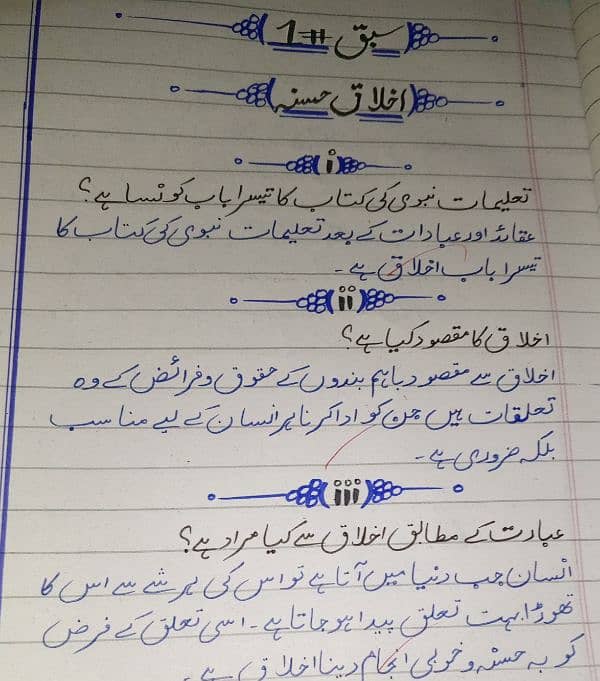 سبق #1
اخلاق حسنہ
i
تعلیمات نبوی کی کتاب کا تیسرا باب کونسا ہے؟
عقائد اور عبادات کے بعد تعلیمات نبوی کی کتاب کا
تیسرا باب اخلاق ہے۔
ii
اخلاق کا مقصود کیا ہے؟
اخلاق سے مقصود باہم بندوں کے حقوق و فرائض کے وہ
تعلقات ہیں جن کو ادا کرنا ہر انسان کے لیے مناسب
بلکہ ضروری ہے۔
iii
عبادت کے مطابق اخلاق سے کیا مراد ہے؟
انسان جب دنیا میں آتا ہے تو اس کی ہر شے سے اس کا
تھوڑا بہت تعلق پیدا ہو جاتا ہے۔ اسی تعلق کے فرض
کو بہ حسنہ و خوبی انجام دینا اخلاق ہے۔